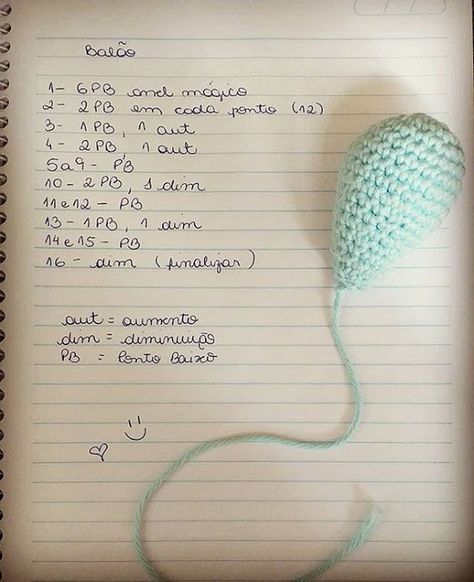 Balão
1- 6PB anel mágico
2- 2PB em cada ponto (12)
3- 1PB, 1 aut
4- 2PB, 1 aut
5 a 9 - PB
10 - 2PB, 1 dim
11 e 12 - PB
13 - 1PB, 1 dim
14 e 15 - PB
16 - dim (finalizar)
aut = aumento
dim = diminuição
PB = Ponto Baixo